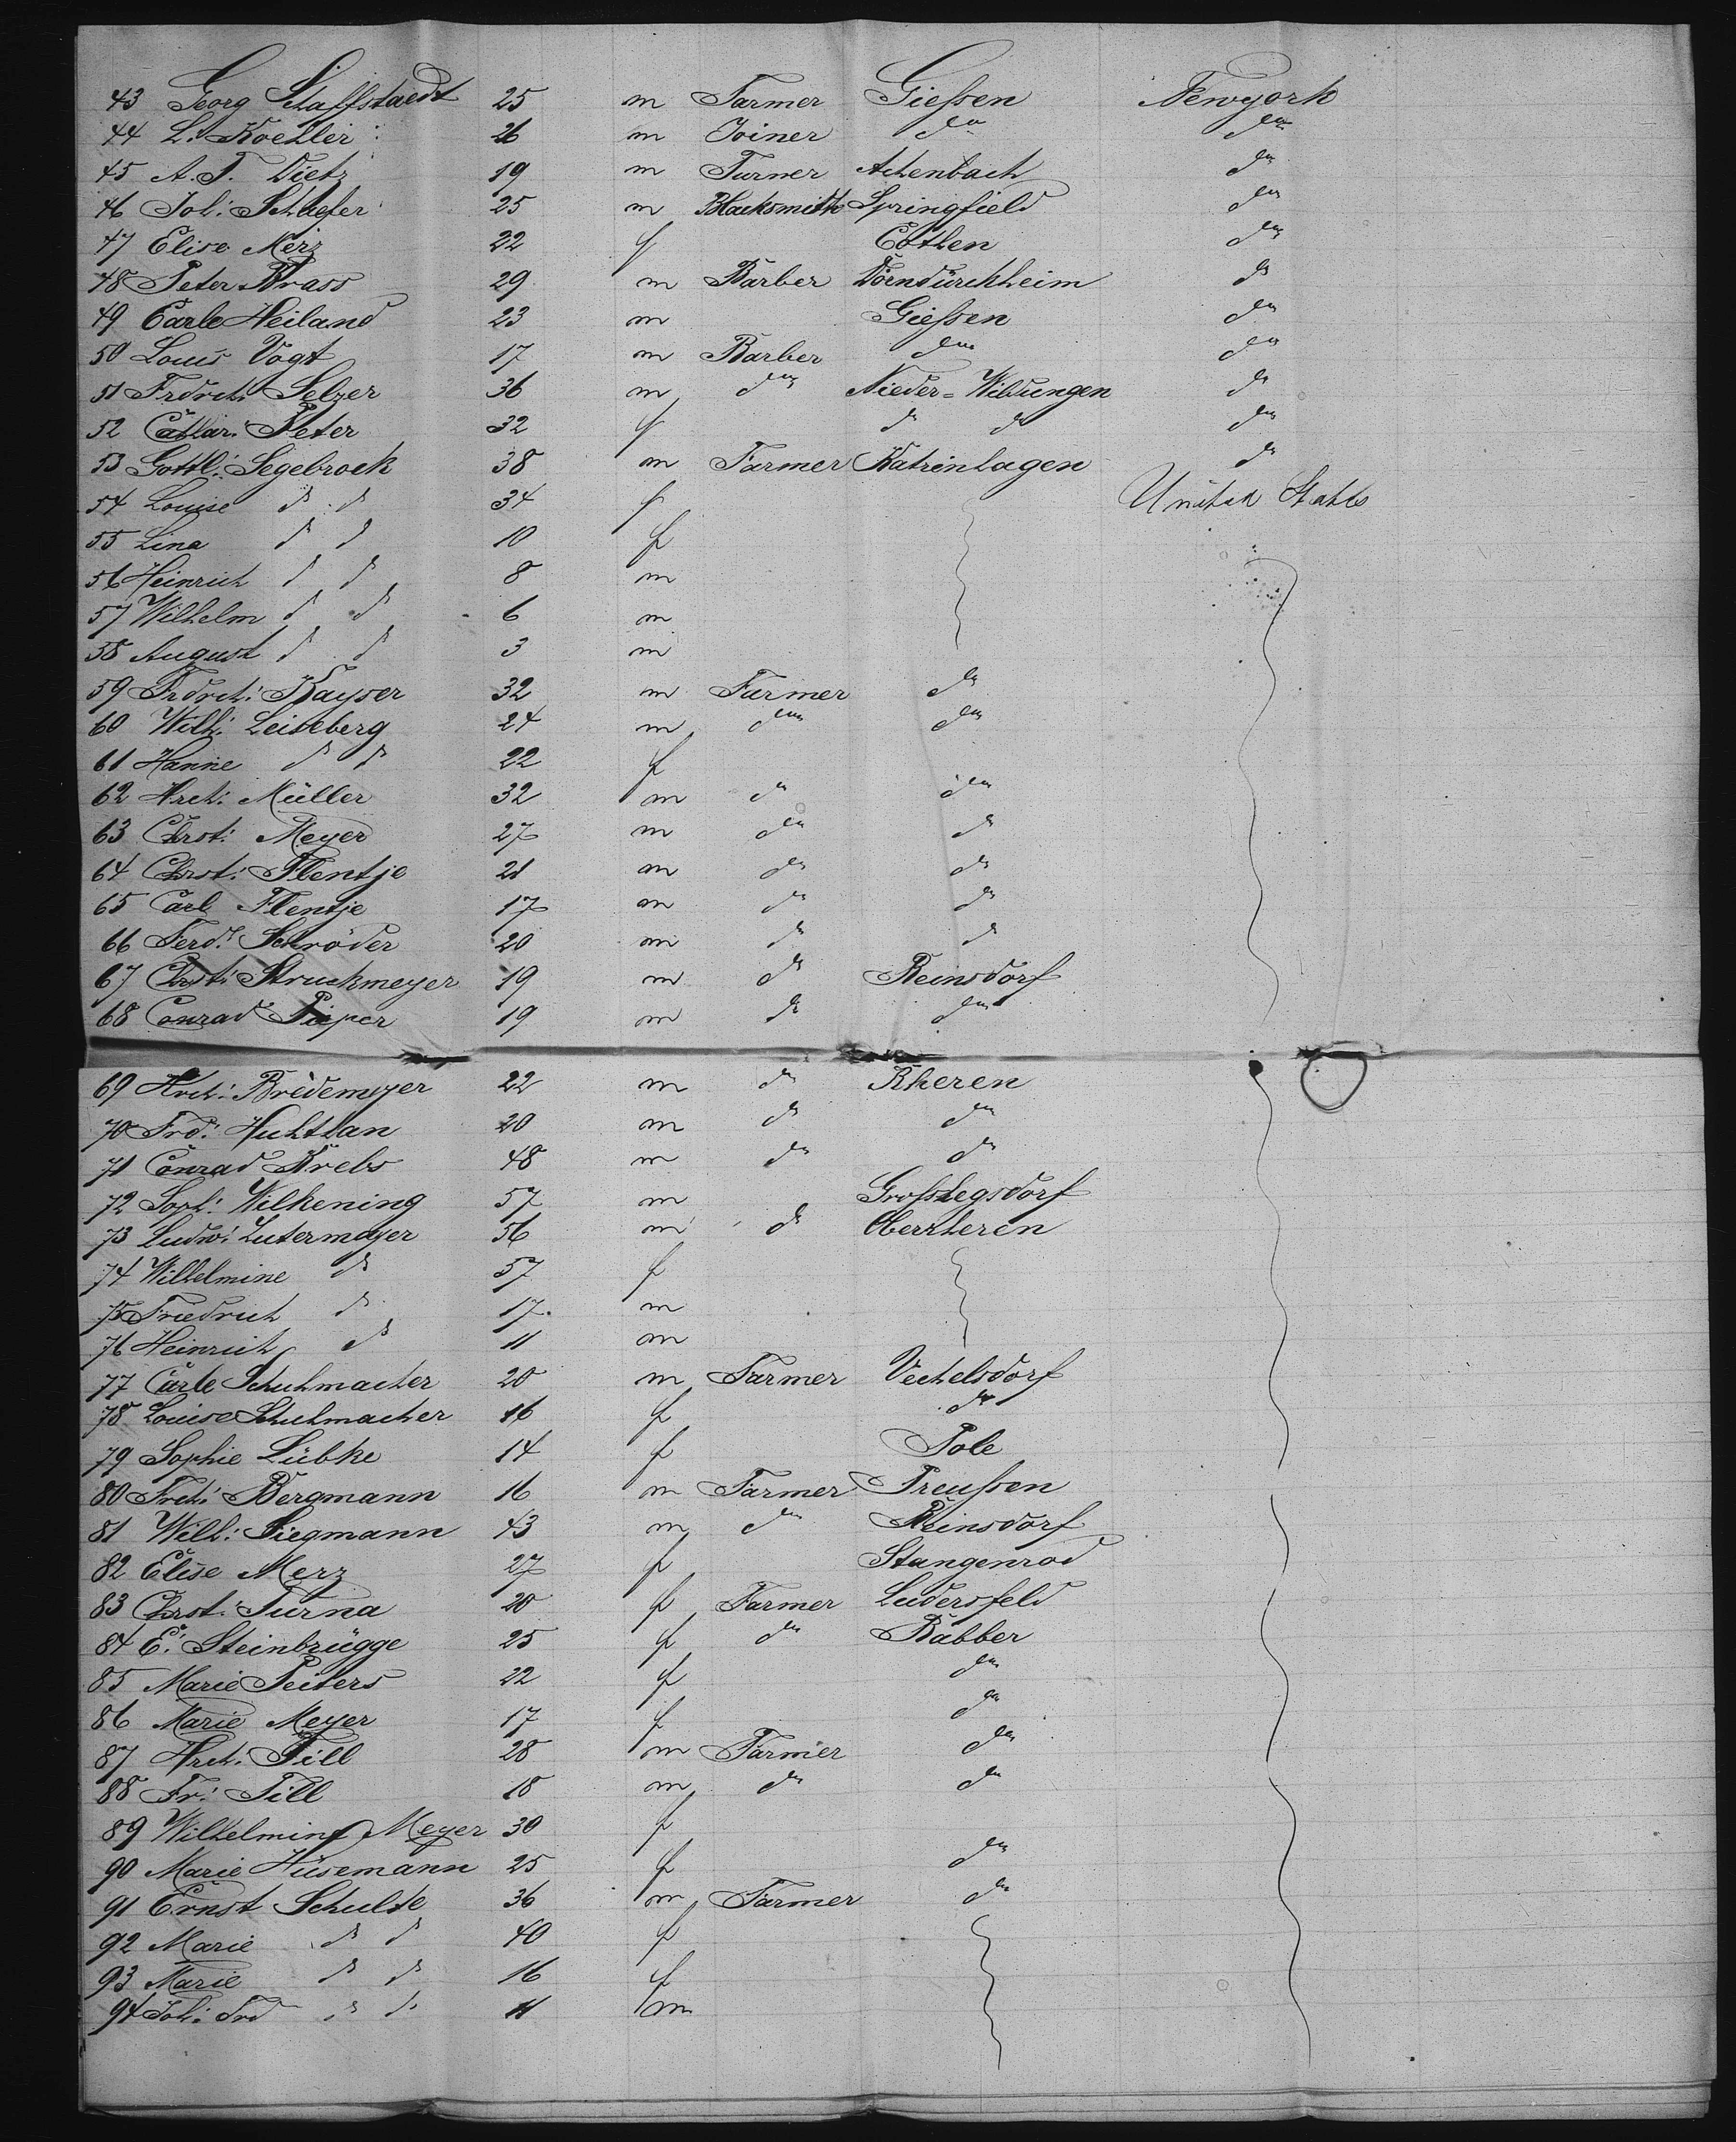 43 Georg Schaffstaedt 25 m Farmer Gießen Newyork
44 L. Koehler 26 m Joiner do do
45 A. F. Dietz 19 m Turner Achenbach do
46 Joh: Schaefer 25 m Blacksmith Springfield do
47 Elise Merz 22 f Cothen do
48 Peter Krass 29 m Barber Dorndürckheim do
49 Carle Heiland 23 m Gießen do
50 Louis Vogt 17 m Barber do do
51 Frdrch Selzer 36 m do Nieder-Wildungen do
52 Cathar: Peter 32 f do do do
53 Gottl: Segebrock 38 m Farmer Katrinhagen do
54 Louise d d 34 f United States
55 Lina d d 10 f
56 Heinrich d d 8 m
57 Wilhelm d d 6 m
58 August d d 3 m
59 Frdrch: Kayser 32 m Farmer do
60 Wilh: Leiseberg 24 m do do
61 Hanne d d 22 f
62 Hrch: Müller 32 m do do
63 Chrst: Meyer 27 m do do
64 Chrst: Flentje 21 m do do
65 Carl Flentje 17 m do do
66 Ferd: Schröder 20 m do do
67 Chrst: Struckmeyer 19 m do Reinsdorf
68 Conrad Pieper 19 m do do
69 Hrch: Bredemeyer 22 m do Rheren
70 Frd: Huhthan 20 m do do
71 Conrad Krebs 48 m do do
72 Soph: Wilkening 57 m Großhegsdorf
73 Ludw: Lutermeyer 56 m do Oberrheren
74 Wilhelmine do 57 f
75 Friedrich do 17 m
76 Heinrich do 11 m
77 Carle Schuhmacher 20 m Farmer Vechelsdorf
78 Louise Schuhmacher 16 f do
79 Sophie Lübke 14 f Pole
80 Frch: Bergmann 16 m Farmer Preußen
81 Wilh: Siegmann 43 m do Reinsdorf
82 Elise Merz 27 f Stangenrod
83 Chrst: Turna 20 f Farmer Ludersfeld
84 E: Steinbrügge 25 f do Babber
85 Marie Peiters 22 f do
86 Marie Meyer 17 f do
87 Hrch: Till 28 m Farmer do
88 Fr: Till 18 m do do
89 Wilhelmine Meyer 30 f
90 Marie Husemann 25 f do
91 Ernst Schulte 36 m Farmer do
92 Marie d d 40 f
93 Marie d d 16 f
94 Joh: Frd d d 11 m